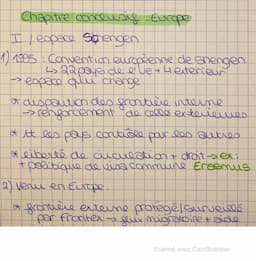 Chapitre conclusif : Europe
I. / espace Schengen
1) 1995 : Convention européenne de shengen
↳ 22 pays de l'Ue + 4 exterieur
→ espace qui change
* disparition des frontière interne
→ renforcement de celle exterieures
* tt les pays contrôlé par les autres
* liberté de circulation + droit → ex :
+ politique de visa commune Erasmus
2) Venir en Europe
* frontière externe protégé / surveillé
par frontex → flux migratoire + aide
Scanné avec CamScanner